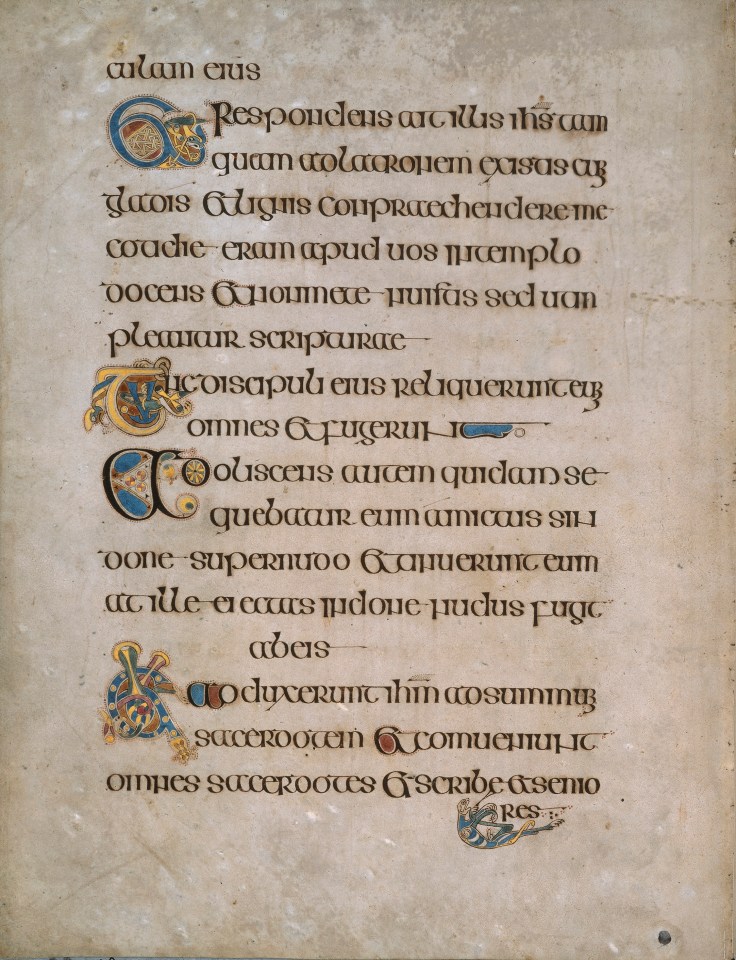 culam eius
Et Respondens ait illis ihs tam
quam ad latronem existis cum
gladis et lignis conpraechendere me
cotidie eram apud vos in templo
docens et non me tenuistis sed ut im
pleantur scripturae
Tunc discipuli eius relinquerunt eum
omnes et fugerunt
Adoliscens autem quidam se
quebatur eum amictus sin
done super nudo et tenuerunt eum
at ille eiectus indone nudus fugit
ab eis
Adduxerunt ihm ad summum
sacerdotem et conveniunt
omnes sacerdotes et scribe et senio
res